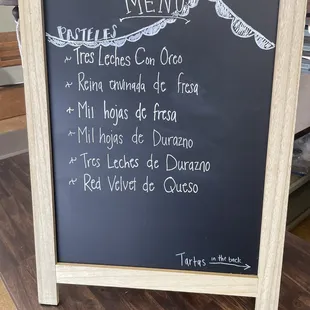 MENU
PASTELES
* Tres Leches Con Oreo
* Reina envinada de fresa
* Mil hojas de fresa
* Mil hojas de Durazno
* Tres Leches de Durazno
* Red Velvet de Queso
Tartas in the back →